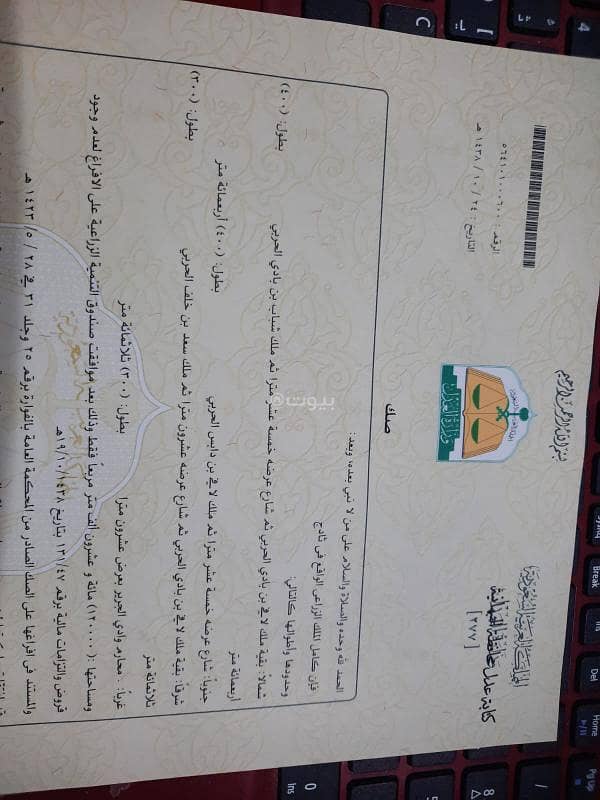 بسم الله الرحمن الرحيم
المملكة العربية السعودية
[٢٧٧]
وزارة العدل
الرقم: ٥٦٤١٠١٠٠٠٦٠٠
التاريخ: ٢٤ / ١٠ / ١٤٣٨ هـ
صك
الحمد لله وحده والصلاة والسلام على من لا نبي بعده، وبعد:
فإن كامل الملك الزراعي الواقع في ثادج
وحدودها وأطوالها كالتالي:
شمالاً: بقية ملك لافي بن بادي الحربي ثم شارع عرضه خمسة عشر مترا ثم ملك شباب بن بادي الحربي بطول: (٤٠٠)
أربعمائة متر
جنوباً: شارع عرضه خمسة عشر مترا ثم ملك لافي بن دابس الحربي بطول: (٤٠٠) أربعمائة متر
شرقاً: بقية ملك لافي بن بادي الحربي ثم شارع عرضه عشرون مترا ثم ملك سعد بن خلف الحربي بطول: (٣٠٠)
ثلاثمائة متر
غرباً: محارم وادي الجرير بعرض عشرون مترا بطول: (٣٠٠) ثلاثمائة متر
ومساحتها: (١٢٠٠٠٠) مائة و عشرون ألف متر مربعاً فقط وذلك بعد موافقة صندوق التنمية الزراعية على الافراغ لعدم وجود
قروض والتزامات مالية برقم ١٣١/٤٧ بتاريخ ١٤٣٨/١٠/١٩هـ
والمستند في افراغها على الصك الصادر من المحكمة العامة بالفوارة برقم ٢٥ وجلد ٣١ في ٢٨ / ٥ / ١٤٢٣ هـ
بيوت
C
Break
Ins
Del
Home
Pg Up
0
Ins
8
4